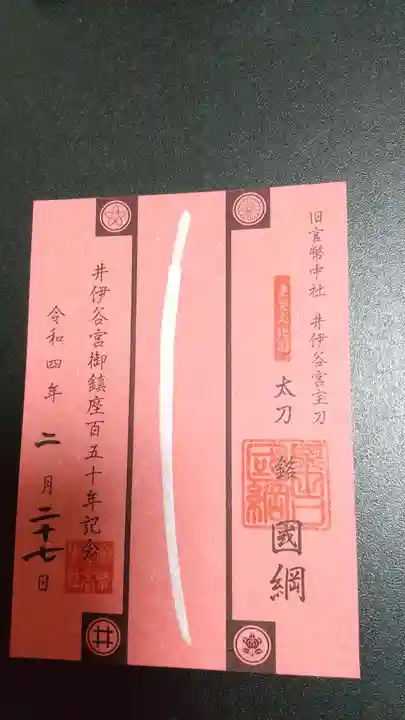 旧官幣中社 井伊谷宮宝刀
重要文化財
太刀 銘 國綱
井伊谷宮御鎮座百五十年記念
令和四年 二月二十七日